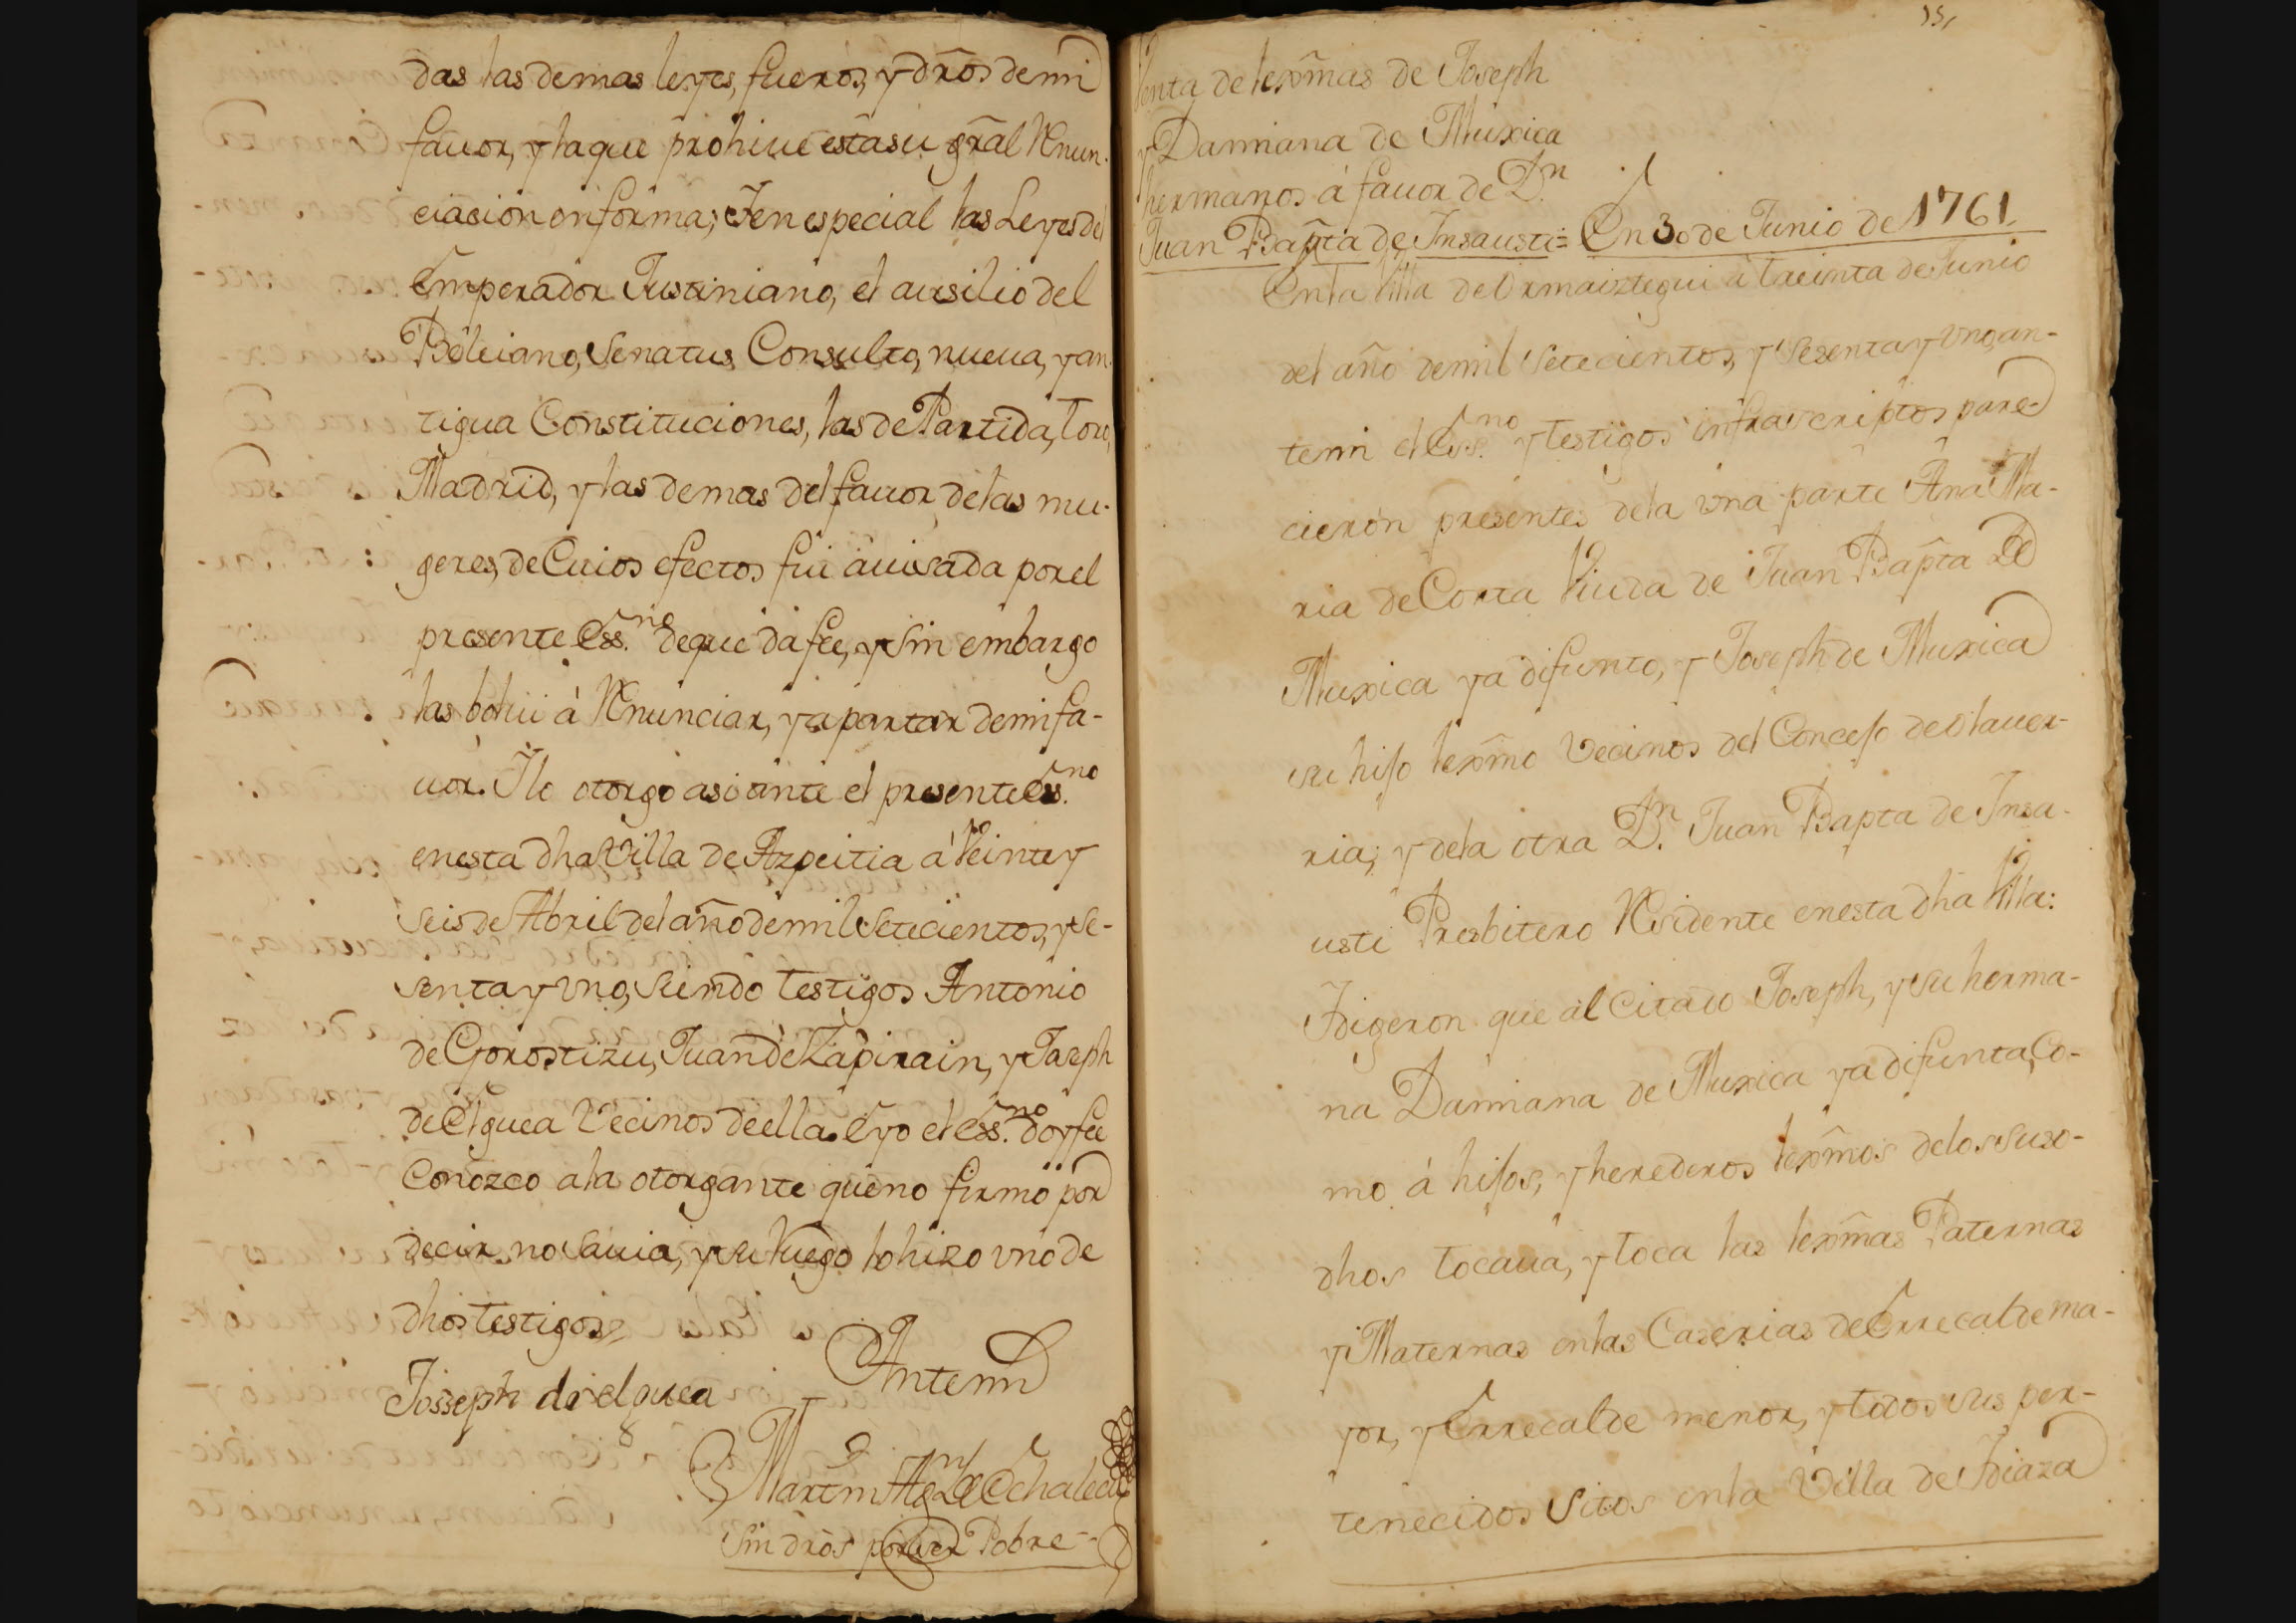 das las demas leyes, fueros, y dr̃os de mi
fauor, y la que prohiue esta su gr̃al Renun-
ciacion en forma; Y en especial las Leyes del
Emperador Justiniano, el ausilio del
Beleiano, Senatus Consulto, nueua, y an-
tigua Constituciones, las de Partida, Toro,
Madrid, y las demas del fauor de las mu-
geres, de Cuios efectos fui auisada por el
presente Ess.no de que da fee, y sin embargo
las bolui à Renunciar, y apartar de mi fa-
uor. Y lo otorgo asi ante el presente Ess.no
en esta dha Villa de Azpeitia a Veinte y
seis de Abril del año de mil Setecientos, y se-
senta y vno, siendo testigos Antonio
de Gorostizu, Juan de Zapirain, y Joseph
de Elguea Vecinos de ella. E yo el Ess.no doy fee
Conozco a la otorgante que no firmó por
decir no sauia, y a su Ruego lo hizo vno de
dhos testigos
Josseph de elguea
Ante mi
Martin Ag.n de Echalecu
Sin dr̃os por ser Pobre
151
Venta de lexm̃as de Joseph
y Damiana de Muxica
hermanos á fauor de D.n
Juan Bap̃ta de Insausti = En 30 de Junio de 1761
En la Villa de Ormaiztegui a treinta de Junio
del año de mil Setecientos, y Sesenta y vno, an-
te mi el Ess.no y testigos infrascriptos pare-
cieron presentes de la vna parte Ana Ma-
ria de Corta Viuda de Juan Bap̃ta de
Muxica ya difunto, y Joseph de Muxica
su hijo lexm̃o Vecinos del Concejo de Olauer-
ria; y de la otra D.n Juan Bapta de Insa-
usti Presbitero Residente en esta dha Villa:
Y digeron que al Citado Joseph, y su herma-
na Damiana de Muxica ya difunta, Co-
mo á hijos, y herederos lexm̃os de los suso-
dhos tocaua, y toca las lexm̃as Paternas
y Maternas en las Caserias de Errecalde ma-
yor, y Errecalde menor, y todos sus per-
tenecidos Sitos en la Villa de Ydiaza